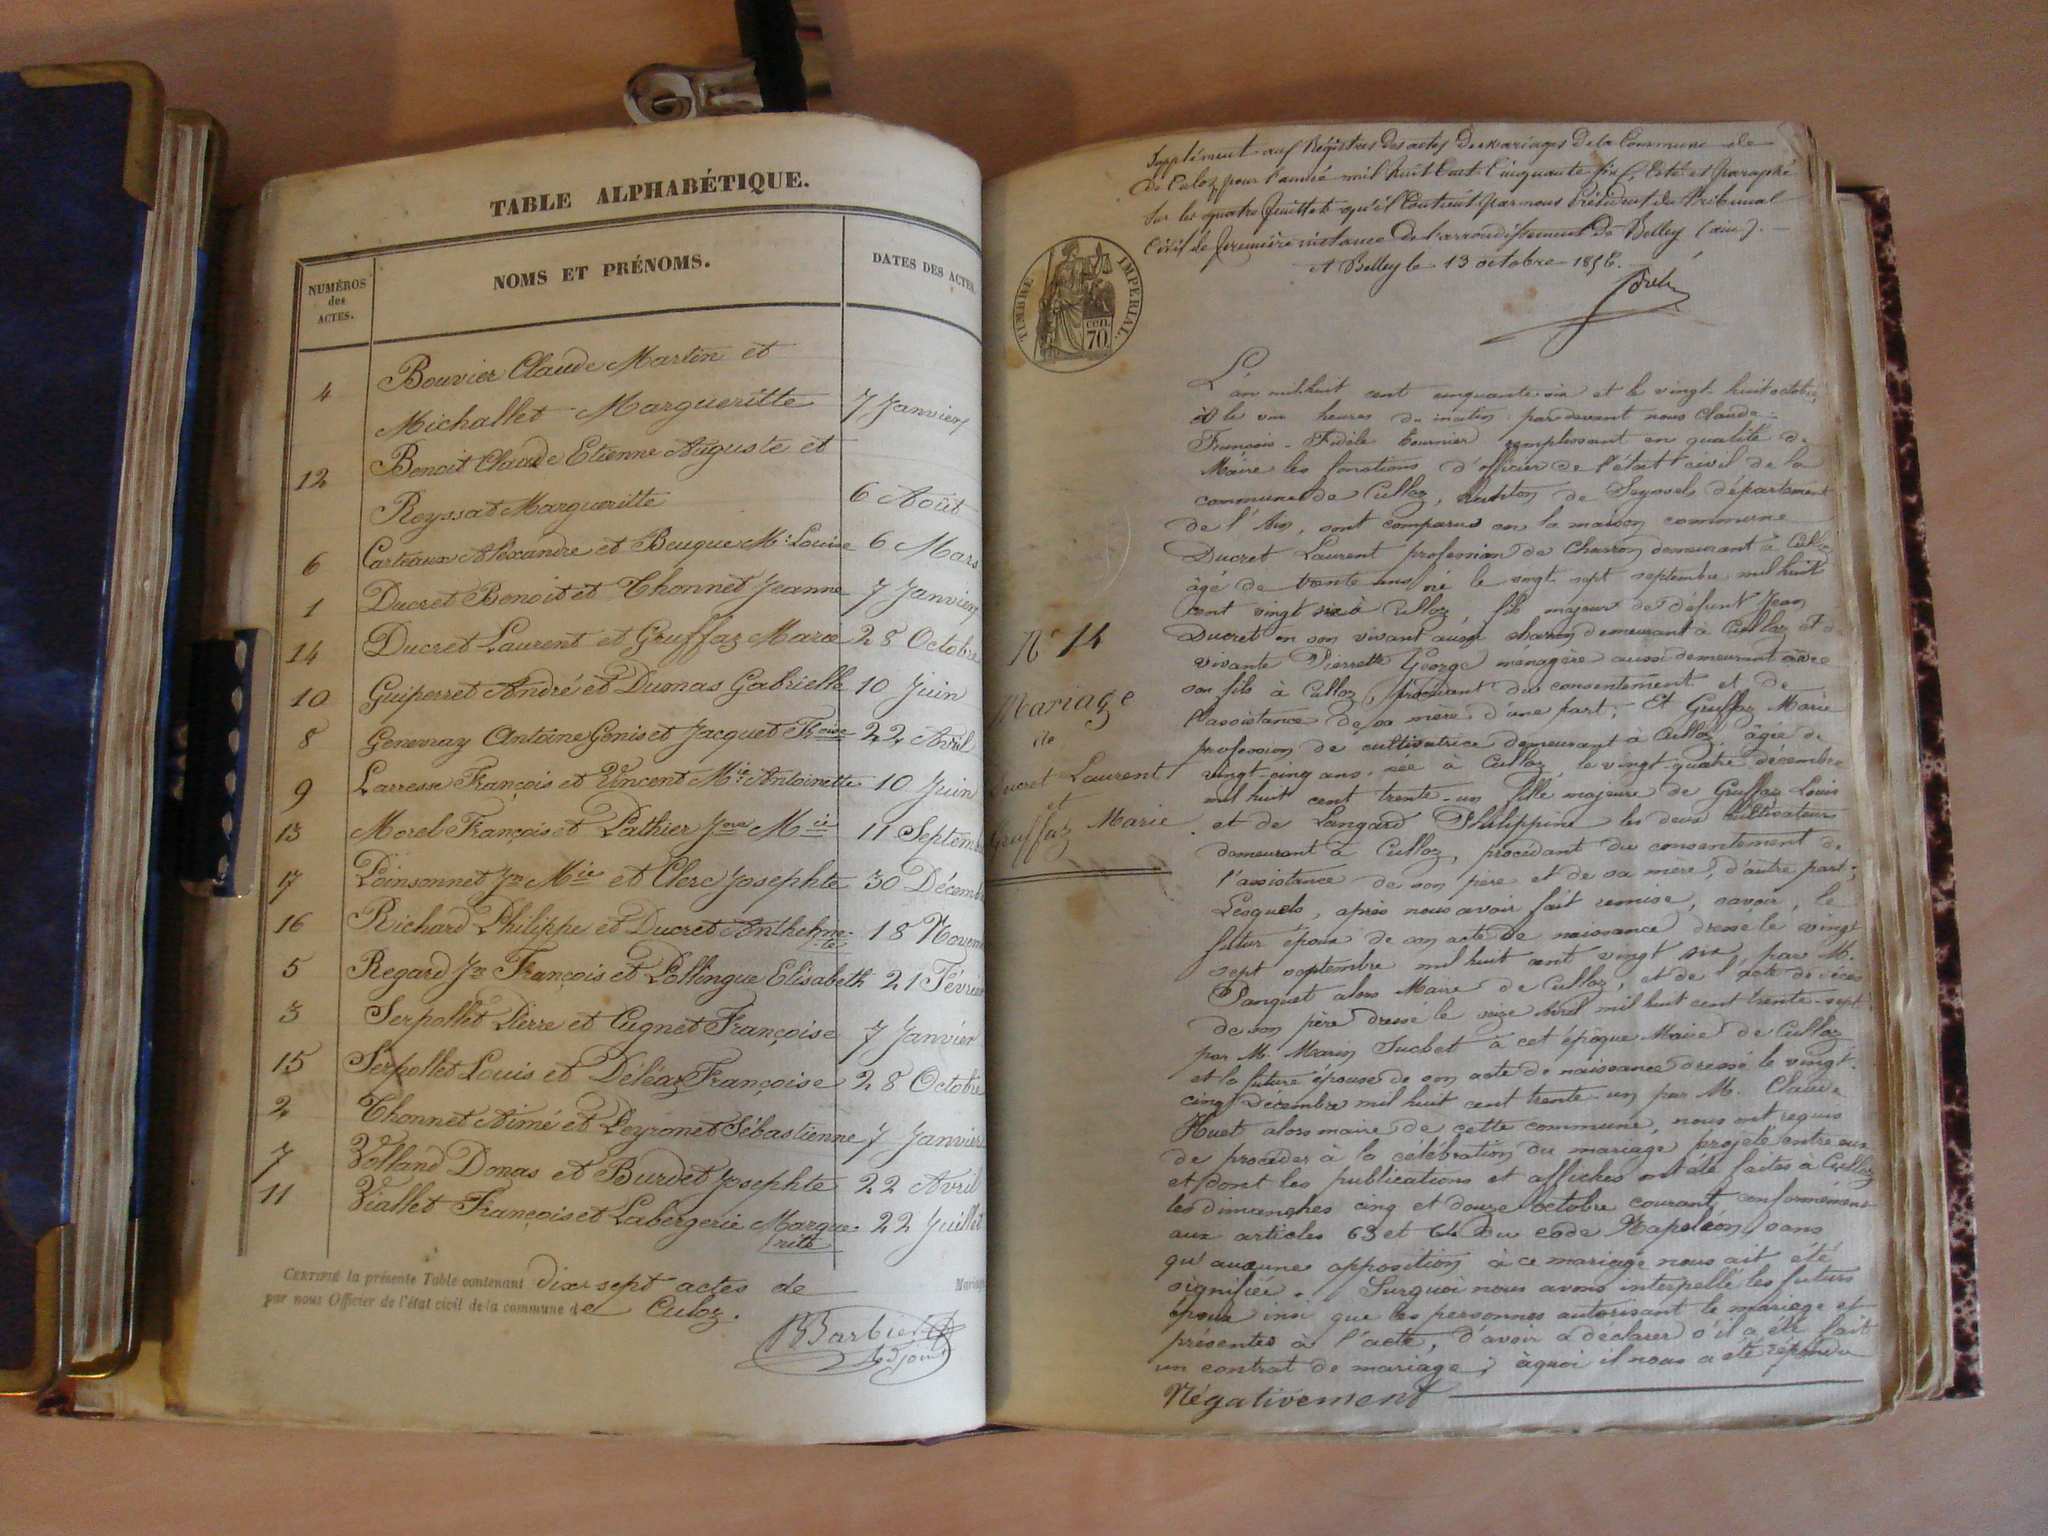 TABLE ALPHABÉTIQUE.
NUMÉROS des ACTES.
NOMS ET PRÉNOMS.
DATES DES ACTES.
4 Bouvier Claude Martin et
Michallet Margueritte 7 Janvier
12 Benoit Claude Etienne Auguste et
Reyssat Margueritte 6 Août
6 Carteaux Alexandre et Beugue Mie Louise 6 Mars
1 Ducret Benoit et Thonnet Jeanne 7 Janvier
14 Ducret Laurent et Gruffaz Marie 28 Octobre
10 Guiperret André et Dumas Gabrielle 10 Juin
8 Genevray Antoine Genis et Jacquet Fçoise 22 Avril
9 Larresse François et Vincent Mie Antoinette 10 Juin
13 Morel François et Pathier Jne Mie 11 Septemb
17 Poinsonnet Jn Mie et Clerc Josephte 30 Décemb
16 Richard Philippe et Ducret Anthelmette 18 Novem
5 Regard Jn François et Pollingue Elisabeth 21 Février
3 Serpollet Pierre et Cugnet Françoise 7 Janvier
15 Serpollet Louis et Déléaz Françoise 28 Octobre
2 Thonnet Aimé et Peyronet Sébastienne 7 Janvier
7 Volland Donas et Burdet Josephte 22 Avril
11 Viallet François et Labergerie Margue- 22 Juillet
rite
CERTIFIÉ la présente Table contenant dix sept actes de Mariage
par nous Officier de l'état civil de la commune de Culoz.
Barbier
Adjoint
Supplément aux Régistres des actes de mariages de la Commune de
de Culoz pour l'année mil huit Cent Cinquante six, Coté et Paraphé
sur les quatre feuillets qu'il Contient par nous Président du Tribunal
Civil de première instance de l'arrondissement de Belley (ain).
A Belley le 13 octobre 1856.
TIMBRE IMPÉRIAL.
CENT.
70
N° 14
Mariage
de
Ducret Laurent
et
Gruffaz Marie
L'an mil huit cent cinquante six et le vingt-huit octobre
heures du matin par devant nous Claude
François-Fidèle remplissant en qualité de
Maire les fonctions d'officier de l'état civil de la
commune de Culloz, canton de Seyssel département
de l'Ain, sont comparus en la maison commune
Ducret Laurent profession de Charron demeurant à Culloz
âgé de trente ans né le vingt-sept septembre mil huit
cent vingt six à Culloz, fils majeur de défunt Jean
Ducret en son vivant aussi charron demeurant à Culloz et de
vivante Pierrette George ménagère aussi demeurant avec
son fils à Culloz, procédant du consentement et de
l'assistance de sa mère d'une part; Et Gruffaz Marie
profession de cultivatrice demeurant à Culloz âgée de
vingt-cinq ans, née à Culloz le vingt-quatre décembre
mil huit cent trente-un fille majeure de Gruffaz Louis
et de Langard Philippine les deux cultivateurs
demeurant à Culloz, procédant du consentement de
l'assistance de son père et de sa mère, d'autre part;
Lesquels, après nous avoir fait remise, savoir, le
futur époux de son acte de naissance dressé le vingt
sept septembre mil huit cent vingt six, par M.
Panquet alors Maire de Culloz, et de l'acte de décès
de son père dressé le seize Avril mil huit cent trente-sept
par M. Marin Suchet à cet époque Maire de Culloz
et la future épouse de son acte de naissance dressé le vingt-
cinq Décembre mil huit cent trente-un par M. Claude
Huet alors maire de cette commune, nous ont requis
de procéder à la célébration du mariage projeté entre eux
et dont les publications et affiches ont été faites à Culloz
les dimanches cinq et douze octobre courant conformément
aux articles 63 et 64 du code Napoléon, sans
qu'aucune opposition à ce mariage nous ait été
signifiée. Surquoi nous avons interpellé les futurs
époux insi que les personnes autorisant le mariage et
présentes à l'acte, d'avoir a déclarer s'il a été fait
un contrat de mariage; àquoi il nous a été répondu
Négativement